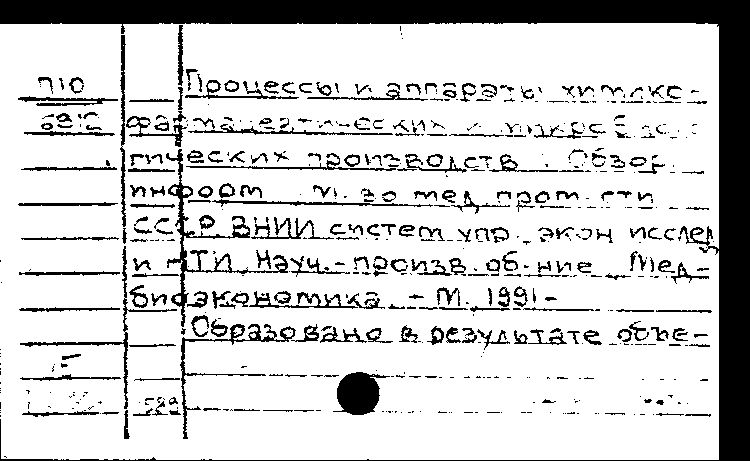 П10 Процессы и аппараты химико-
фармацевтических и микробиоло-
гических производств. Обзор.
информ М-во мед. пром-сти
СССР, ВНИИ систем упр., экон исслед
и НТИ, Науч.-произв. об-ние "Мед-
биоэкономика". - М., 1991-
Образовано в результате объе-